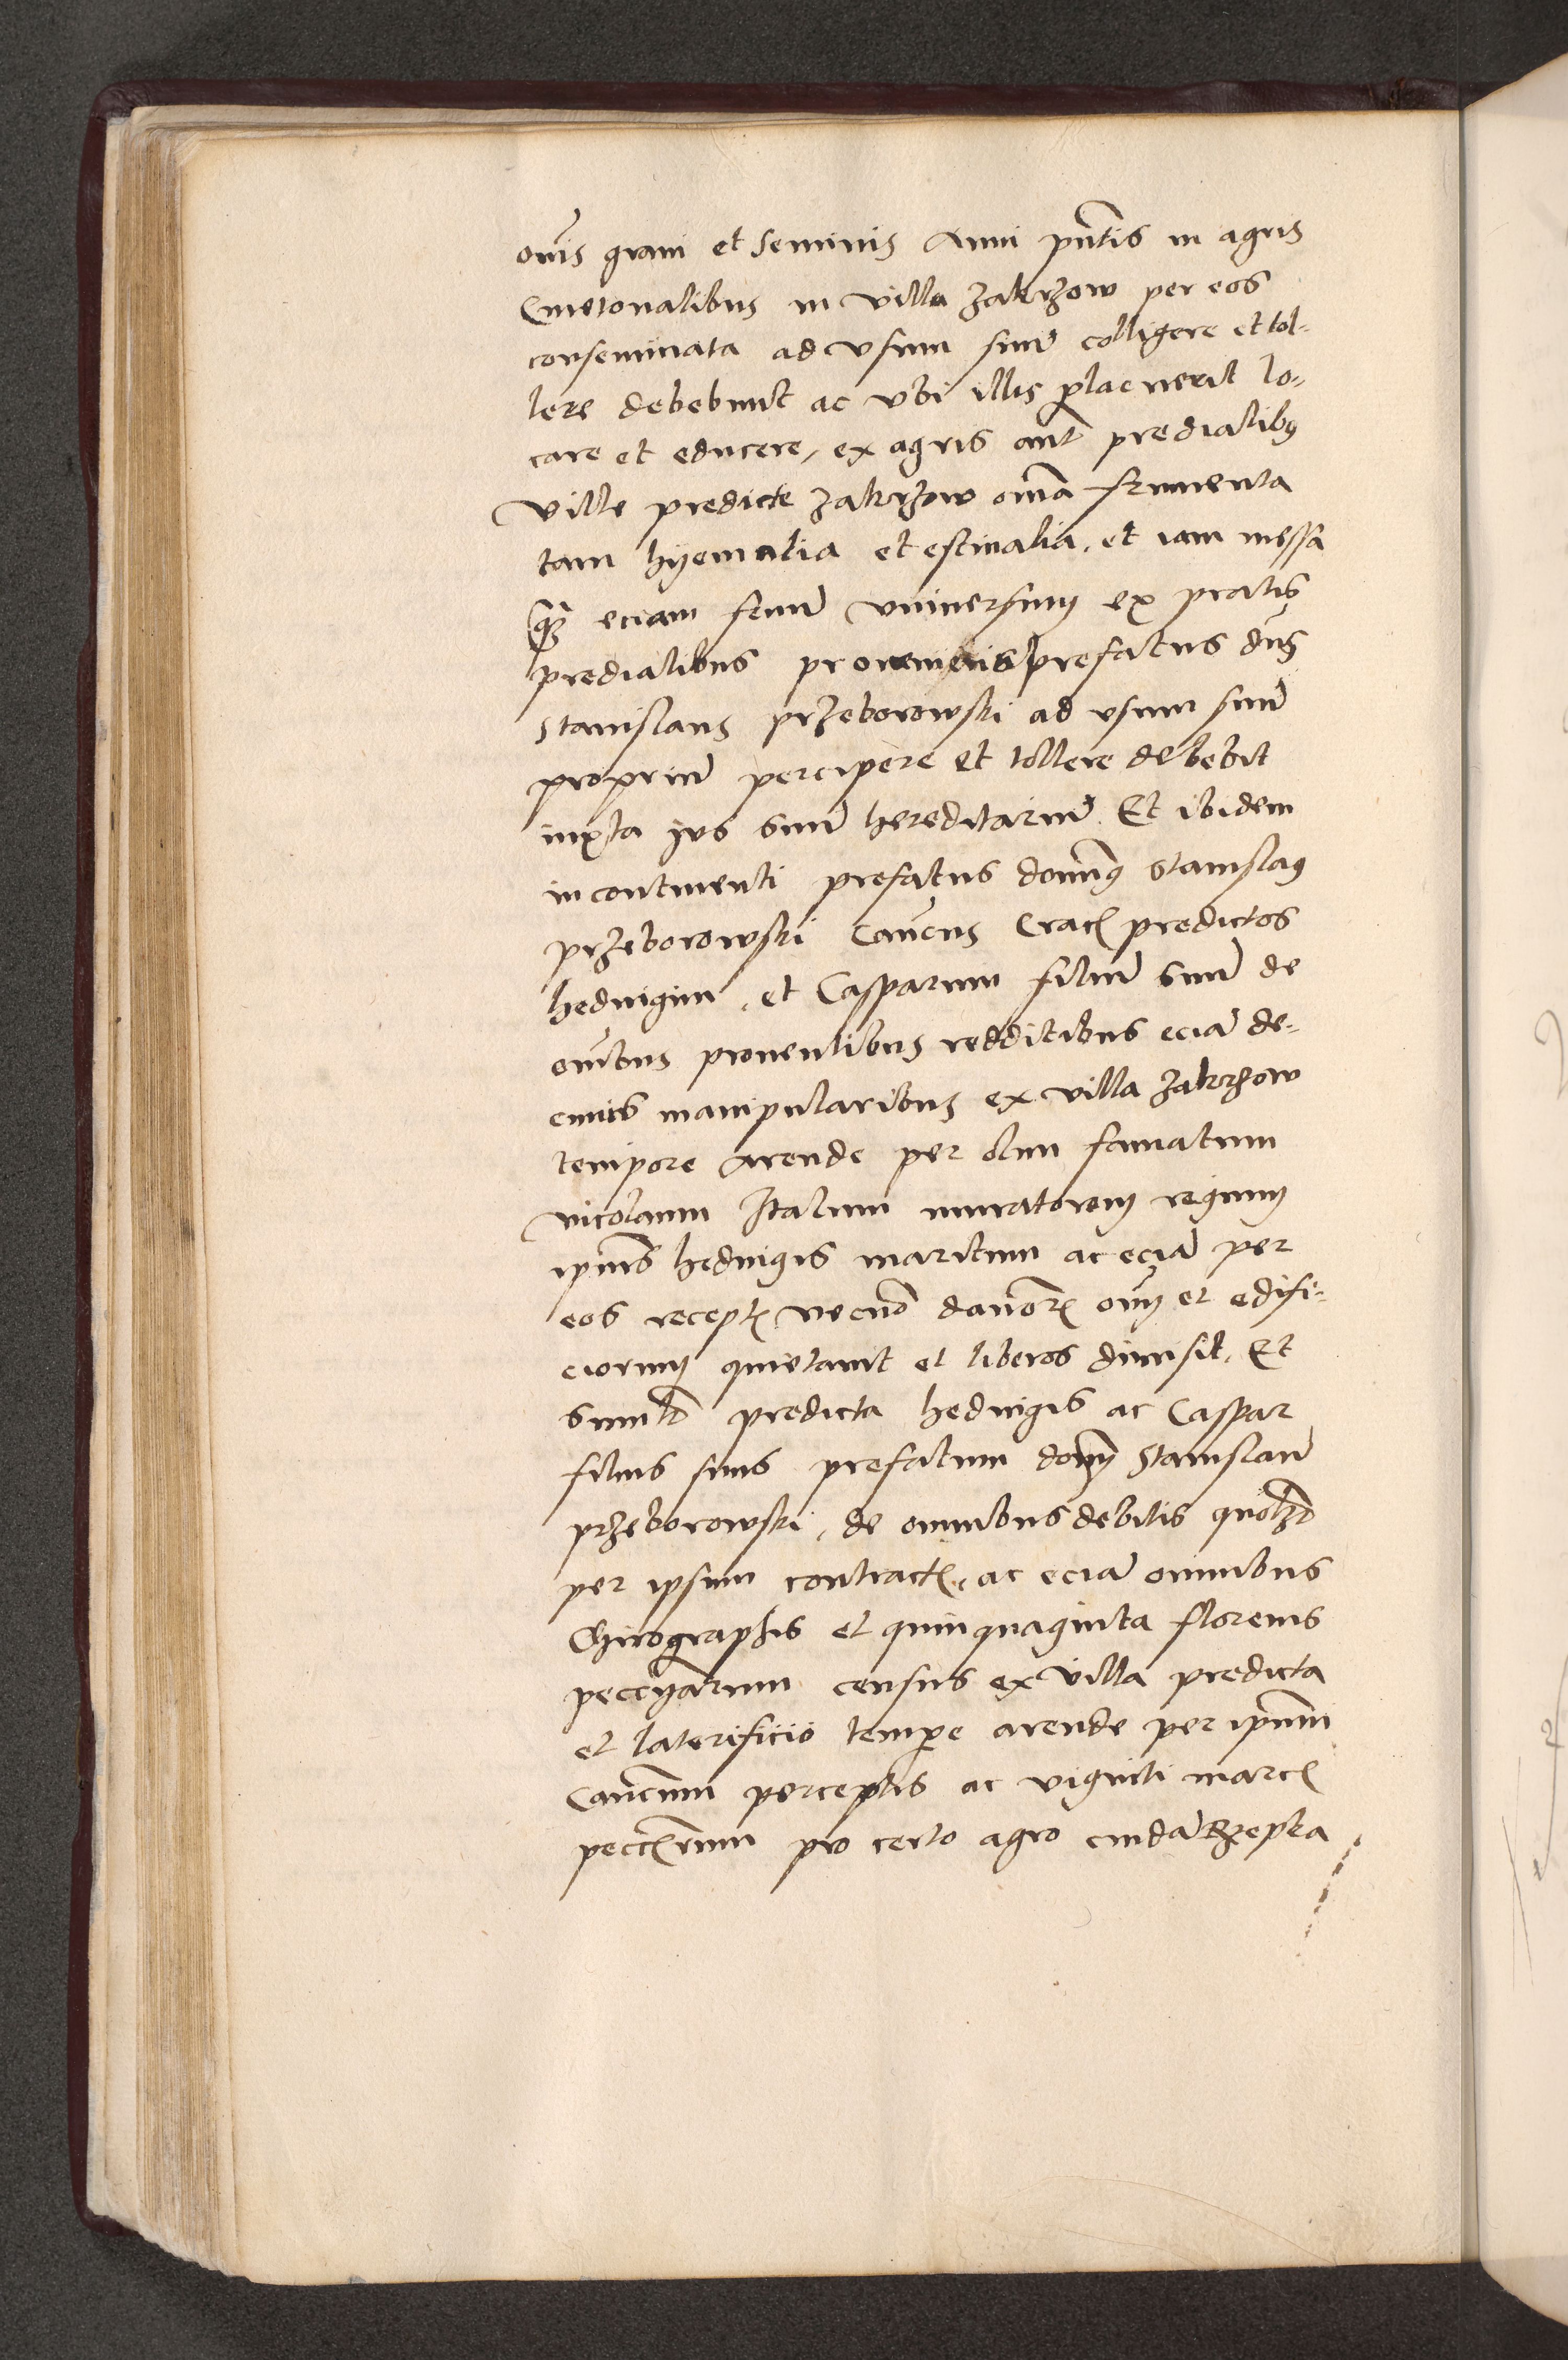 om̅is grani et seminis Anni pn̅tis in agris
Cmetonalibus in villa Zakrzow per eos
conseminata ad vsum suu̅ colligere et tol-
lere debebunt ac vbi illis placuerit lo-
care et educere, ex agris aut̅ predialibus
ville predicte Zakrzow om̅ia frumenta
tam hyemalia et estivalia, et iam messa
q̅ȝ eciam fenu̅ vniversum ex pratis
predialibus proveniens prefatus dn̅s
Stanislaus przeborowski ad vsum suu̅
propriu̅ percipere et tollere debebit
iuxta ius suu̅ hereditariu̅. Et ibidem
in continenti prefatus domin̅g Stanislaus
przeborowski Can̅cus Crac̅ predictos
hedvigim, et Casparum filiu̅ suu̅ de
om̅ibus proventibus redditibus ecia̅ de-
cimis manipularibus ex villa Zakrzow
tempore Arende per olim famatum
Nicolaum Italum muratorem regium
ipsius hedvigis maritum ac ecia̅ per
eos recept̅ necno̅ danor̅ oviu̅ et edifi-
ciorum quietavit et liberos dimisit, Et
simil̅r predicta hedvigis ac Caspar
filius suus prefatum dom̅ Stanislau̅
przeborowski, de omnibus debitis quol̅ȝ
per ipsum contract̅, ac ecia̅ omnibus
Chirographis et quinquaginta florenis
peccuiarum census ex villa predicta
et laterificio temp̅e arende per ipsum
Can̅cum perceptis ac viginti marc̅
pecc̅iarum pro certo agro cuida̅ Rzepka